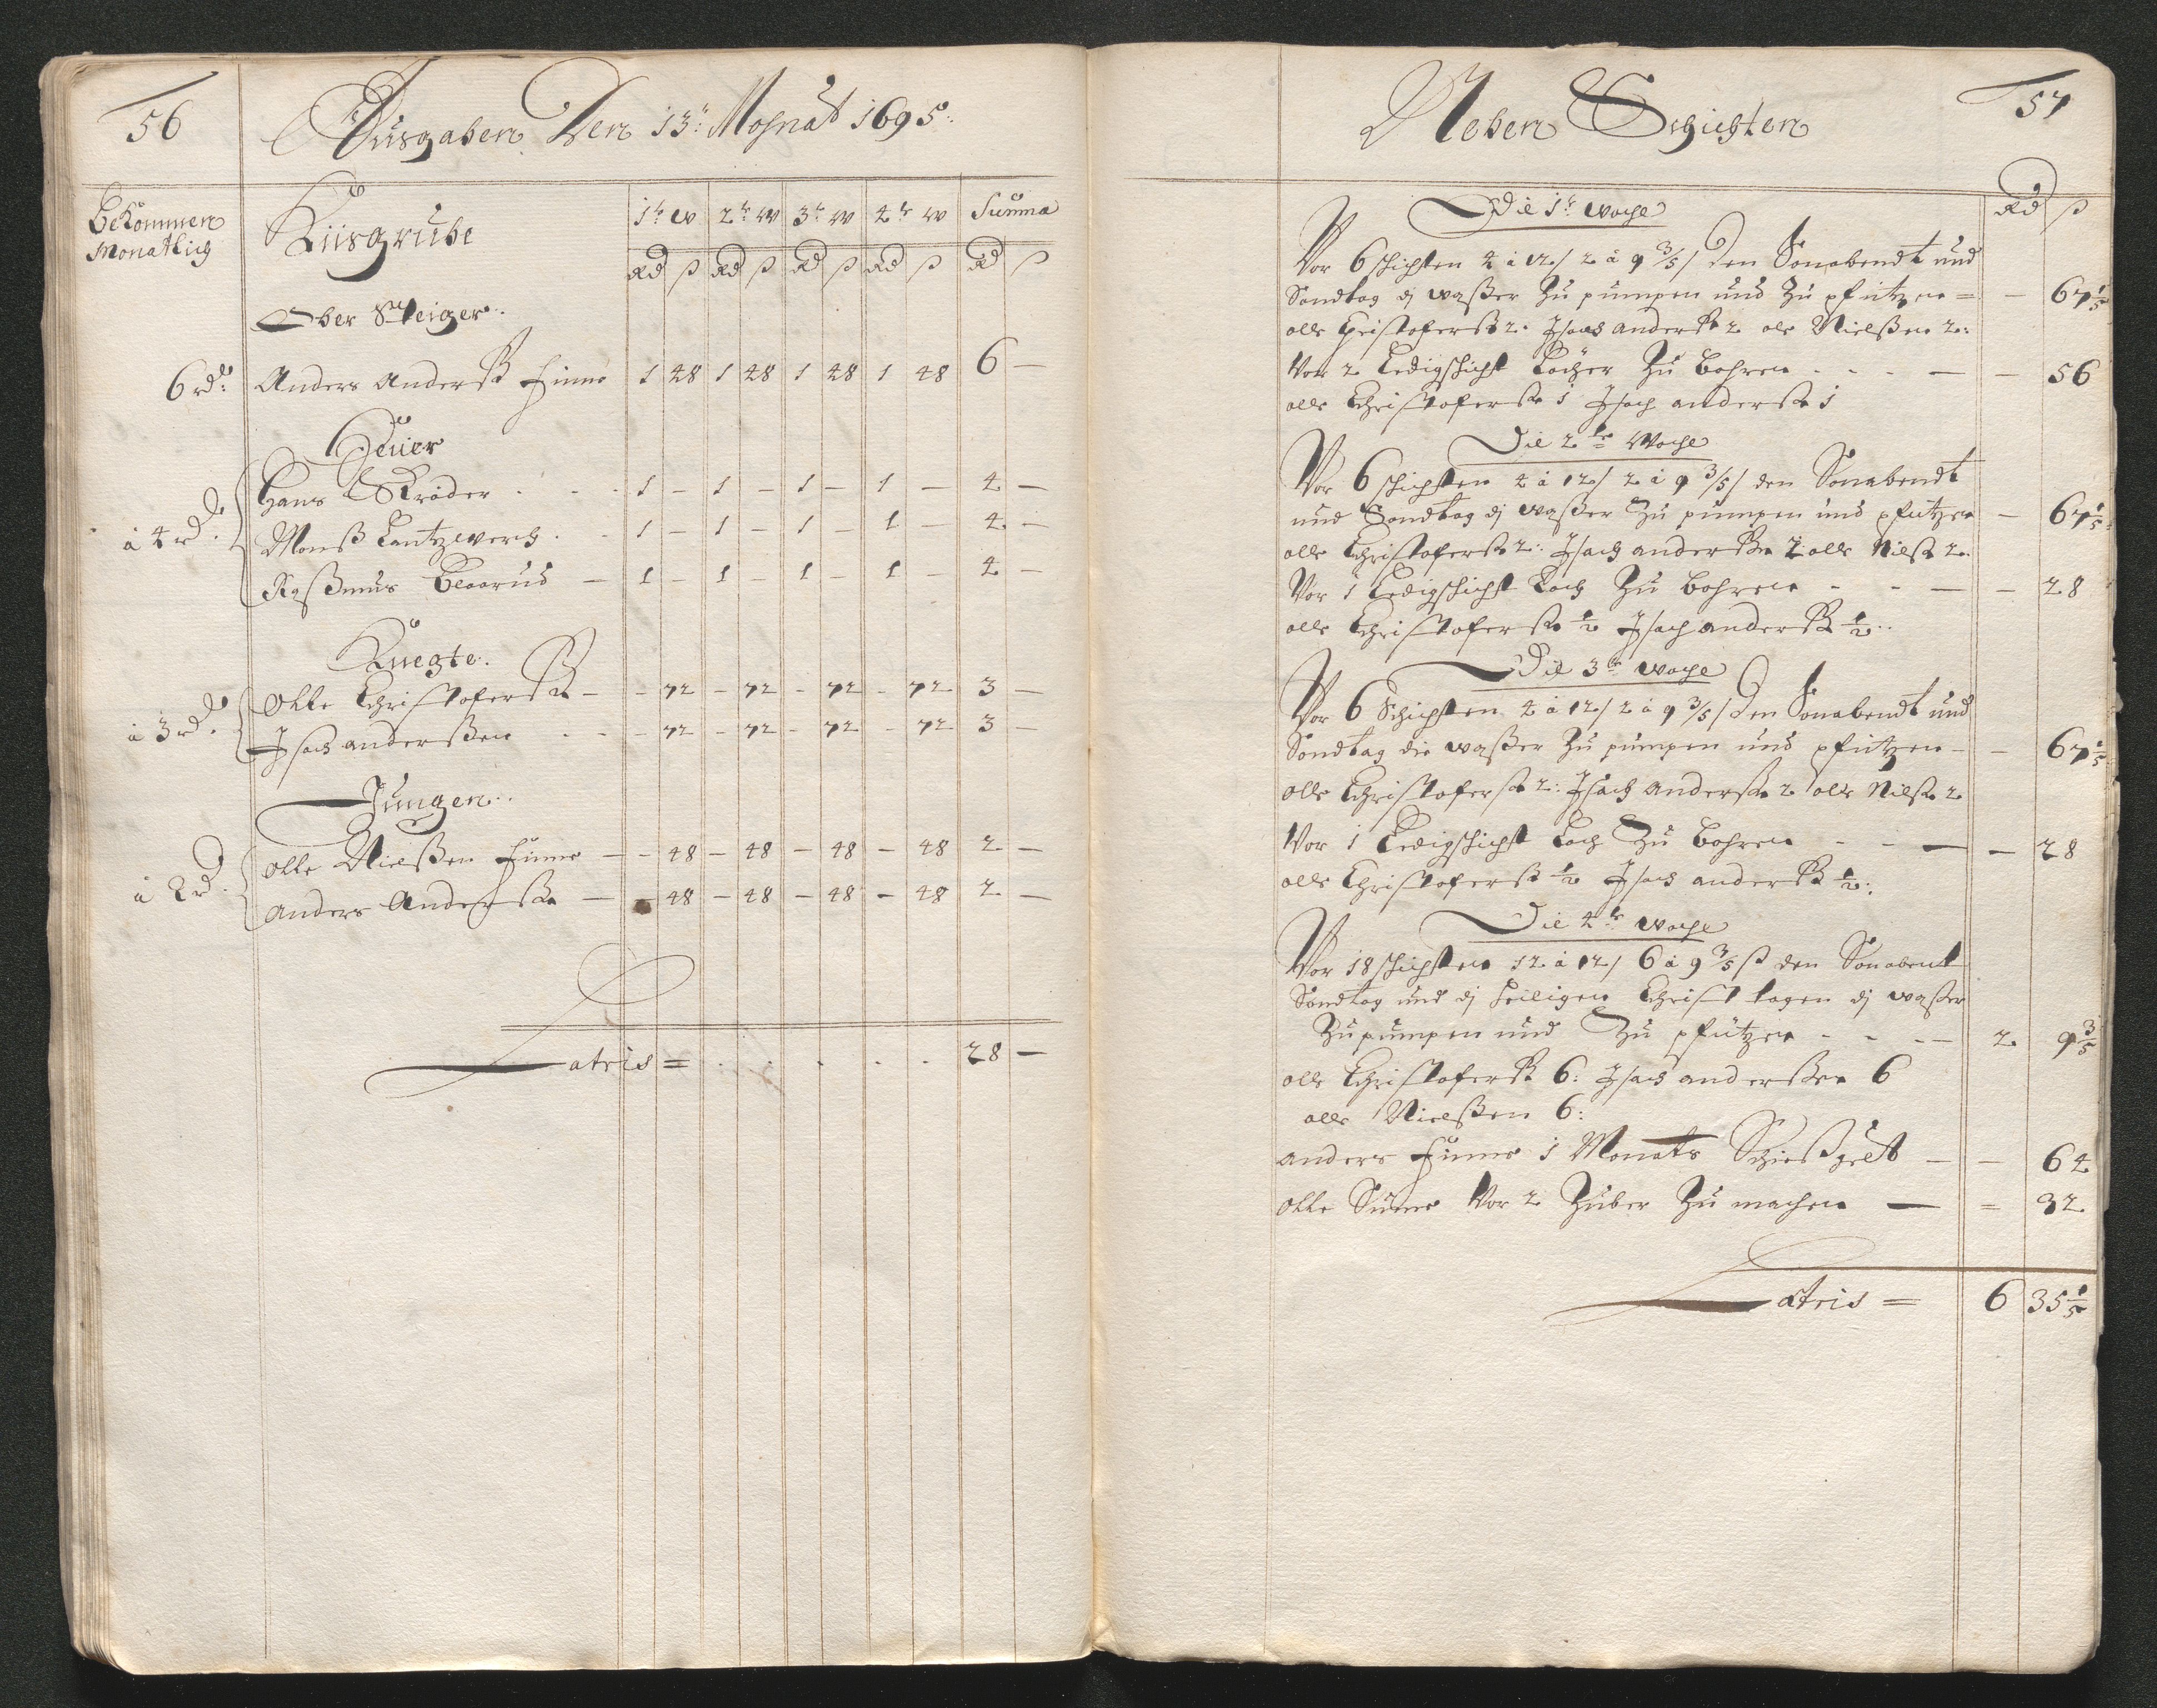 56
Ausgaben Den 13t: Mohnat 1695:
Bekommen
Monatlich
Kiisgrube
1te W 2te W 3te W 4te W Summa
Rd ß Rd ß Rd ß Rd ß Rd ß
Ober Steiger.
6 rd: Anders Anderß Finne 1 48 1 48 1 48 1 48 6 —
Heüer
à 4 rd.
Hans Skröder . . . 1 — 1 — 1 — 1 — 4 —
Monß Lantzwerch . . 1 — 1 — 1 — 1 — 4 —
Raßmus Blaarud — 1 — 1 — 1 — 1 — 4 —
Knegte.
à 3 rd.
Olle Christoferß — - 72 - 72 - 72 - 72 3 —
Isach anderßen . . - 72 - 72 - 72 - 72 3 —
Jungen.
à 2 rd.
Olle Nielßen Finne — - 48 - 48 - 48 - 48 2 —
Anders Anderßn — - 48 - 48 - 48 - 48 2 —
Latris = . . . . . 28 —
57
Neben Schichten
Rd ß
Die 1te woche
Vor 6 schichten 4 à 12/ 2 à 9 3/5/ Den Sonabendt und
Sondtag di waßer Zu pumpen und Zu pfützen = — 67 1/5
olle Christoferß 2. Isach anderß 2 ole Nielßen 2:
Vor 2 Ledigschicht Löcher Zu bohren . . . — — 56
olle Christoferßn 1 Isach anderßn 1
Die 2te Woche
Vor 6 schichten 4 à 12/ 2 à 9 3/5/ den Sonabendt
und Sondtag di waßer Zu pumpen und pfützen — 67 1/5
olle Christoferßn 2: Isach anderßen 2 olle Nilßn 2.
Vor 1 Ledigschicht Loch Zu bohren - - — — 28
olle Christoferßn 1/2 Isach anderßn 1/2..
Die 3te woche
Vor 6 Schichten 4 à 12/ 2 à 9 3/5/ Den Sonabendt und
Sondtag die waßer Zu pumpen und pfützen — — 67 1/5
olle Christoferßn 2: Isach Anderßn 2 olle Nilßn 2
Vor 1 Ledigschicht Loch Zu bohren - - — — 28
olle Christoferß 1/2 Isach anderß 1/2:
Die 4te woche
Vor 18 schichten 12 à 12/ 6 à 9 3/5 ß den Sonabent
Sondtag und di heiligen Christ tagen di waßer
Zu pumpen und Zu pfützen - - — 2 9 3/5
olle Christoferß 6: Isach anderßen 6
olle Nielßen 6:
anders Finne 1 Monats Schießgelt — — 64
Olle Vor 2 Zuber Zu machen — = 32
Latris = 6 35 1/5